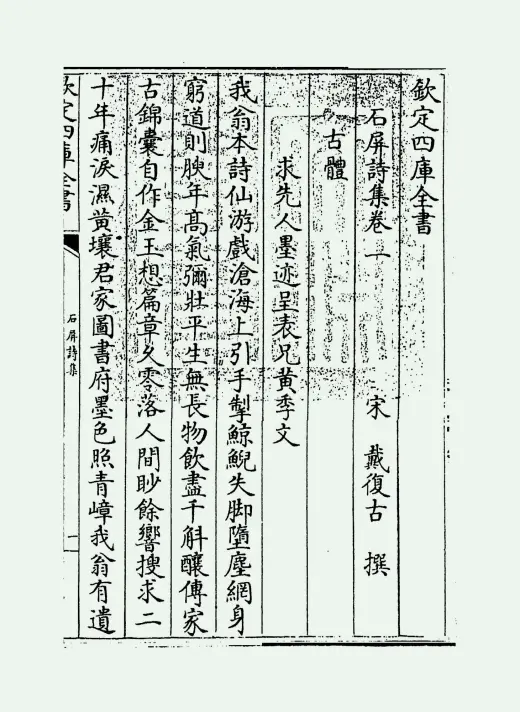 欽定四庫全書
石屏詩集卷一　　　宋　戴復古　撰
古體
求先人墨迹呈表兄黄季文
我翁本詩仙游戲滄海上引手掣鯨鯢失脚墮塵網身
窮道則腴年髙氣彌壯平生無長物飲盡千斛釀傳家
古錦囊自作金玉想篇章久零落人間眇餘響搜求二
十年痛淚濕黄壤君家圖書府墨色照青嶂我翁有遺
欽定四庫全書
石屏詩集
一